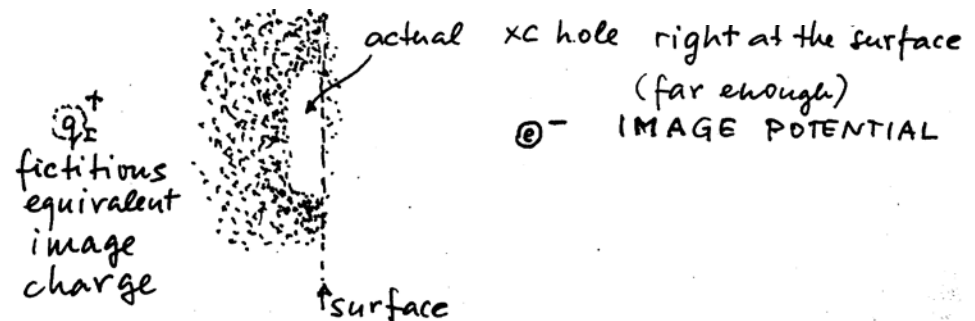 actual xc hole right at the surface
(far enough)
e- IMAGE POTENTIAL
qI+
fictitious
equivalent
image
charge
surface